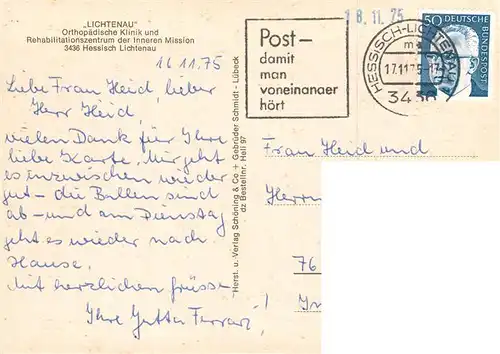 „LICHTENAU"
Orthopädische Klinik und
Rehabilitationszentrum der Inneren Mission
3436 Hessisch Lichtenau
16 11.75
Liebe Frau Heid, lieber
Herr Heid,
vielen Dank für Ihre
liebe Karte. Mir geht
es inzwischen wieder
gut – die Ballen sind
ab – und am Dienstag
geht es wieder nach
Hause.
Mit herzlichen Grüsse
Ihre Jutta Ferrari!
Herst. u. Verlag Schöning & Co + Gebrüder Schmidt - Lübeck
dz Bestellnr. Heli 97
Post –
damit
man
voneinander
hört
18. 11. 75
HESSISCH-LICHTENAU
17.11.75
3436
50 DEUTSCHE
BUNDESPOST
Frau Heid und
Herrn
76